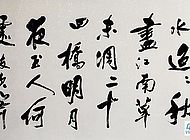 水迢迢秋
盡江南草
未凋二十
四橋明月
夜玉人何
處教吹簫